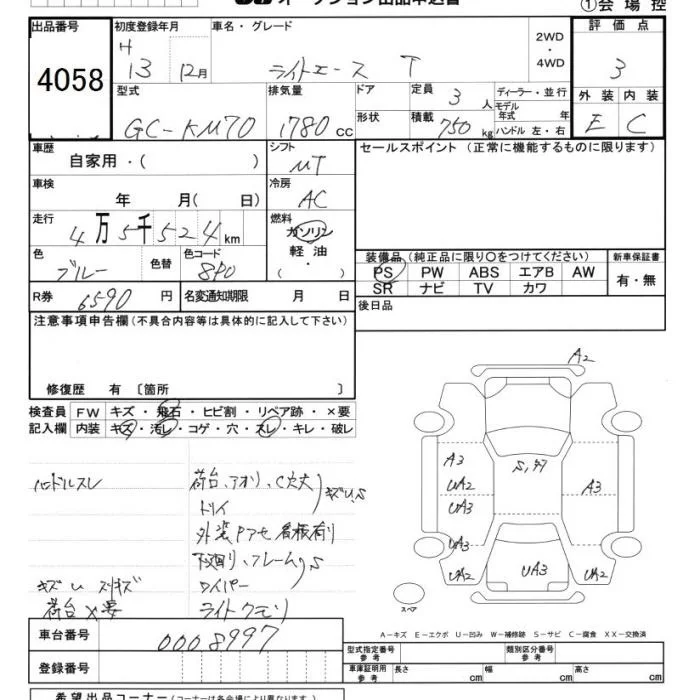 ①会 場 控
出品番号
4058
初度登録年月
H
13 12月
車名・グレード
ライトエース T
2WD
・
4WD
評 価 点
3
型式
GC-KM70
排気量
1780 CC
ドア
形状
定員
3 人
積載
750 kg
ディーラー・並行
モデル
年式 年
ハンドル 左・右
外 装 内 装
E C
車歴
自家用・( )
シフト
MT
セールスポイント(正常に機能するものに限ります)
車検
年 月( 日)
冷房
AC
走行
4 万 5 千 5 2 4 km
燃料
ガソリン
軽 油
・
( )
色
ブルー
色替
色コード
8P0
装備品(純正品に限り〇をつけてください)
新車保証書
PS PW ABS エアB AW
有・無
SR ナビ TV カワ
R券
6590 円
名変通知期限 月 日
後日品
注意事項申告欄(不具合内容等は具体的に記入して下さい)
修復歴 有 〔箇所 〕
検査員 FW キズ・飛石・ヒビ割・リペア跡・×要
記入欄 内装 キズ・汚レ・コゲ・穴・スレ・キレ・破レ
ハンドルスレ
荷台、アオリ、C穴大
キズU、S
外装
下廻り、フレーム、S
ワイパー
荷台×要
ライトクモリ
A2
A3
UA2
UA3
S,
A3
UA3
UA2
UA3
UA2
スペア
A-キズ E-エクボ U-凹み W-補修跡 S-サビ C-腐食 XX-交換済
車台番号
0008997
登録番号
型式指定番号
参 考
類別区分番号
参 考
車庫証明用
参 考
長さ cm 幅 cm 高さ cm
希望出品コーナー(コーナーは各会場により異なります)